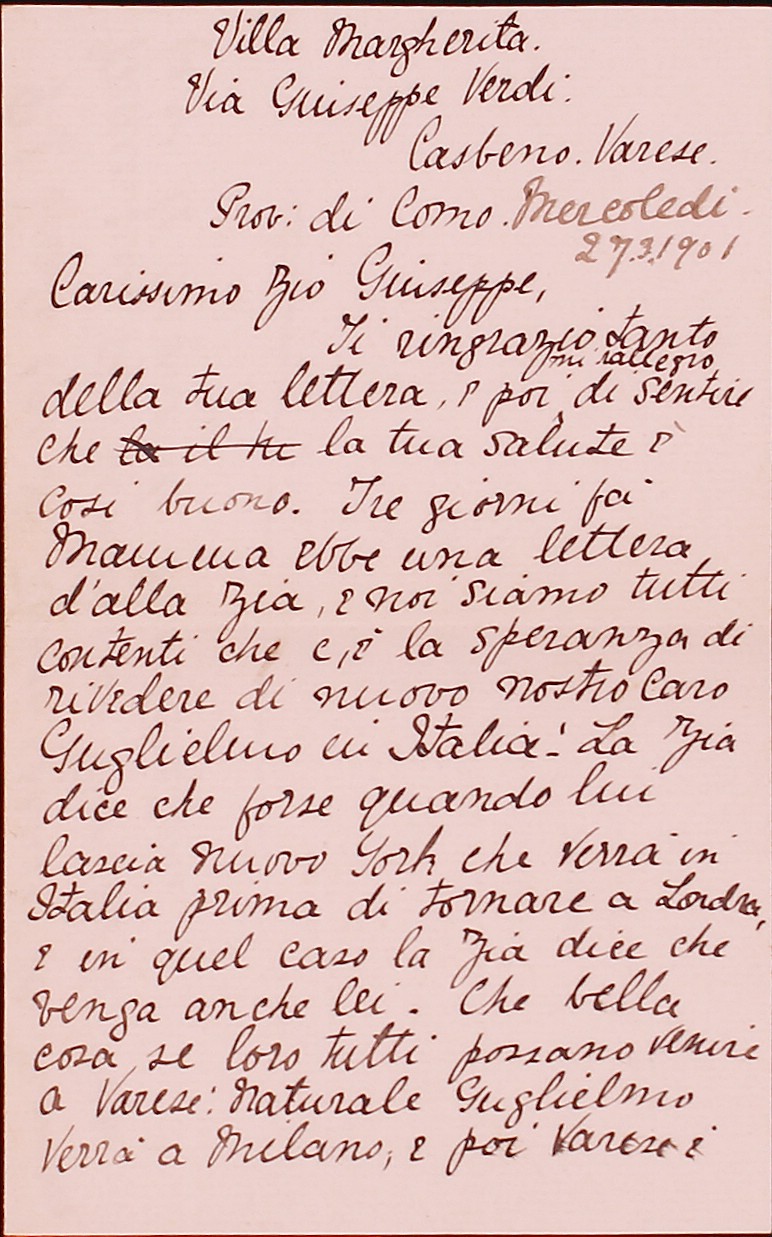 Villa Margherita.
Via Giuseppe Verdi.
Casbeno. Varese.
Prov: di Como. Mercoledi.
27.3.1901
Carissimo Zio Giuseppe,
Ti ringrazio tanto
mi rallegro
della tua lettera, e poi di sentire
che la il tu la tua salute è
cosi buono. Tre giorni fa
Mamma ebbe una lettera
d'alla Zia, e noi siamo tutti
contenti che c,è la speranza di
rivedere di nuovo nostro caro
Guglielmo in Italia! La Zia
dice che forse quando lui
lascia Nuovo York che verrà in
Italia prima di tornare a Londra,
e in quel caso la Zia dice che
venga anche lei. Che bella
cosa se loro tutti possano venire
a Varese! Naturale Guglielmo
verrà a Milano, e poi Varese è